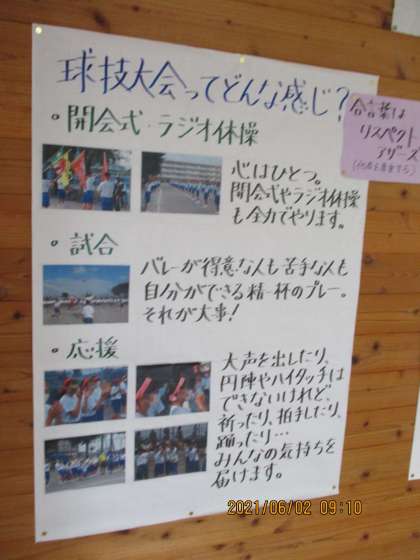 球技大会ってどんな感じ?
合言葉は
リスペクト
アザーズ
。開会式・ラジオ体操
心はひとつ。
開会式やラジオ体操
も全力でやります。
。試合
バレーが得意な人も苦手な人も
自分ができる精一杯のプレー。
それが大事!
。応援
大声を出したり、
円陣やハイタッチは
できないけれど、
祈ったり、拍手したり、
踊ったり…
みんなの気持ちを
届けます。
2021/06/02 09:10